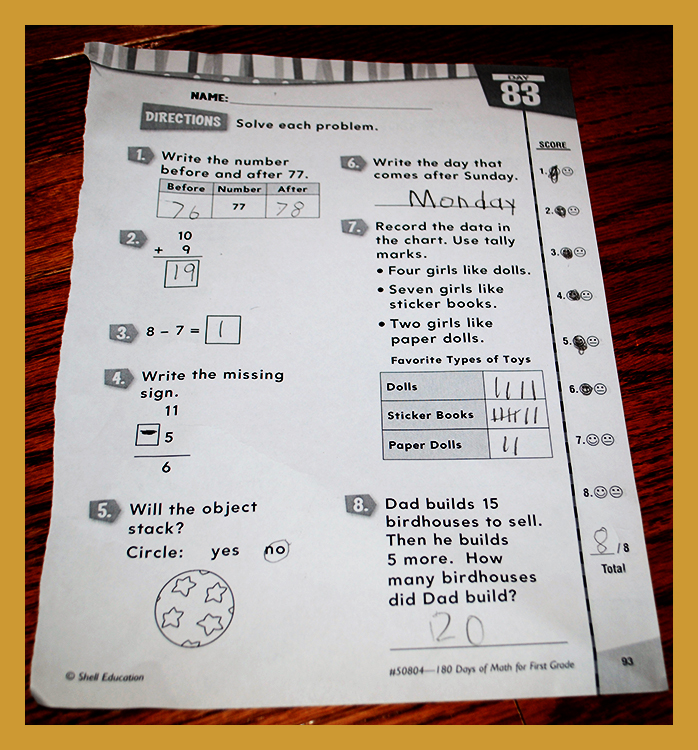 DAY
83
NAME:
DIRECTIONS Solve each problem.
1. Write the number
before and after 77.
Before Number After
76 77 78
2. 10
+ 9
19
3. 8 – 7 = 1
4. Write the missing
sign.
11
– 5
6
5. Will the object
stack?
Circle: yes no
6. Write the day that
comes after Sunday.
Monday
7. Record the data in
the chart. Use tally
marks.
• Four girls like dolls.
• Seven girls like
sticker books.
• Two girls like
paper dolls.
Favorite Types of Toys
Dolls
Sticker Books
Paper Dolls
8. Dad builds 15
birdhouses to sell.
Then he builds
5 more. How
many birdhouses
did Dad build?
20
SCORE
1.
2.
3.
4.
5.
6.
7.
8.
8 / 8
Total
© Shell Education
#50804—180 Days of Math for First Grade
93